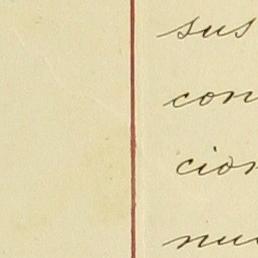 sus
con
cion
nu